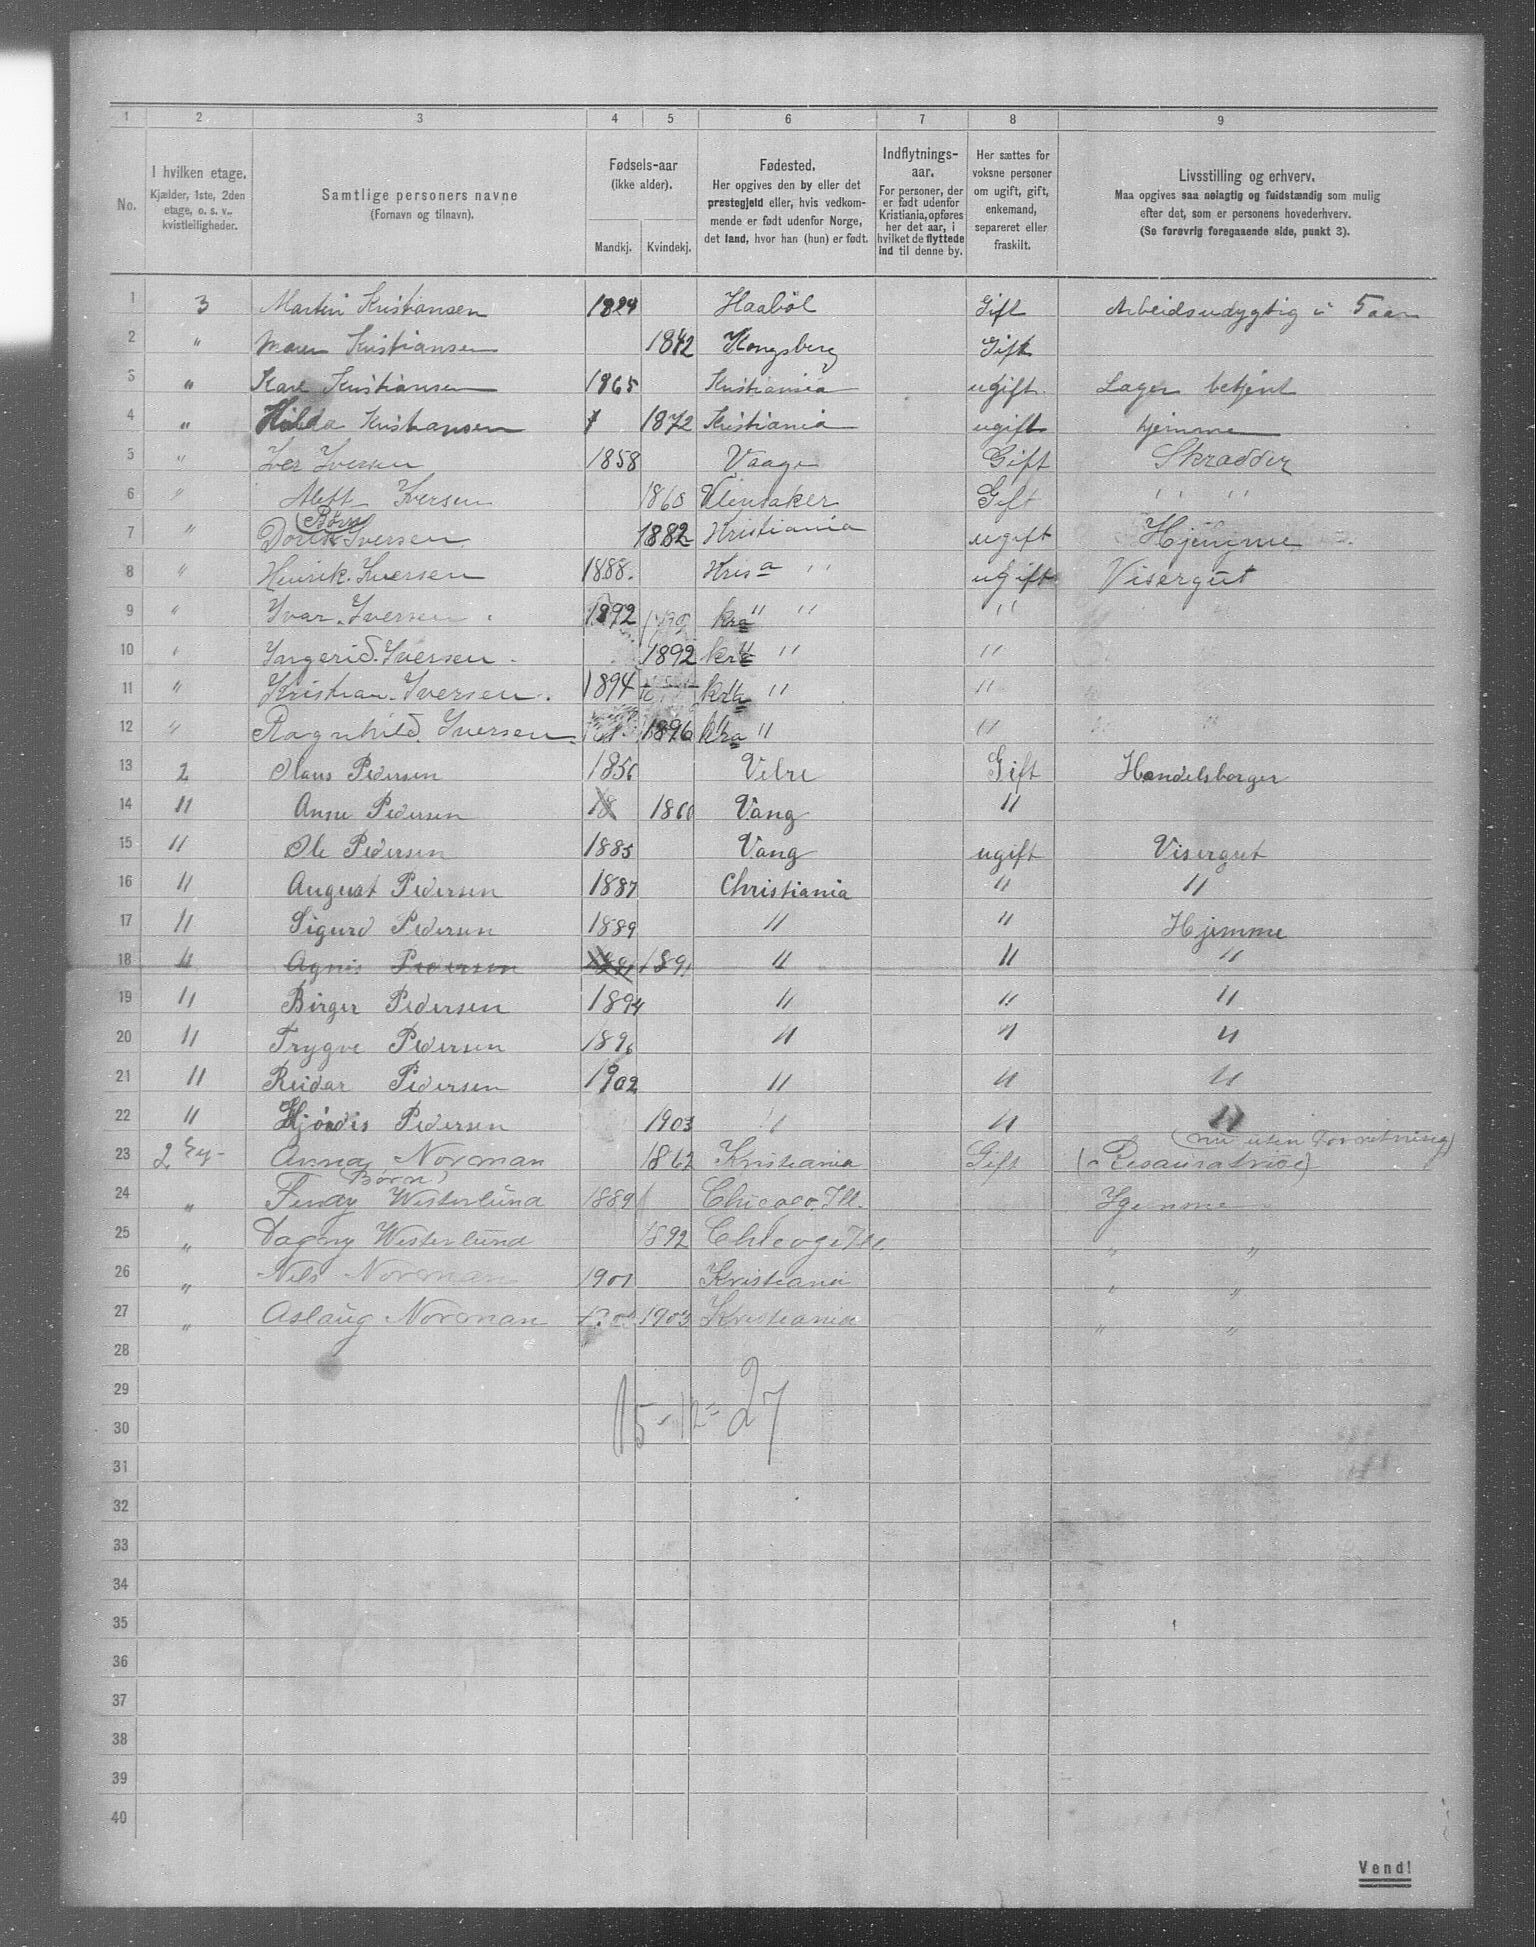 1 2 3 4 5 6 7 8 9
No.
I hvilken etage.
Kjælder, 1ste, 2den
etage, o. s. v.,
kvistleiligheder.
Samtlige personers navne
(Fornavn og tilnavn).
Fødsels-aar
(ikke alder).
Mandkj. Kvindekj.
Fødested.
Her opgives den by eller det
prestegjeld eller, hvis vedkom-
mende er født udenfor Norge,
det land, hvor han (hun) er født.
Indflytnings-
aar.
For personer, der
er født udenfor
Kristiania, opføres
her det aar, i
hvilket de flyttede
ind til denne by.
Her sættes for
voksne personer
om ugift, gift,
enkemand,
separeret eller
fraskilt.
Livsstilling og erhverv.
Maa opgives saa nøiagtig og fuldstændig som mulig
efter det, som er personens hovederhverv.
(Se forøvrig foregaaende side, punkt 3).
1 3 Martin Kristiansen 1824 Haabøl Gift Arbeidsudygtig i 5 aar
2 " Maren Kristiansen 1842 Kongsberg Gift
3 " Karl Kristiansen 1865 Kristiania ugift. Lager betjent
4 " Hilda Kristiansen 1872 Kristiania ugift hjemme
5 " Iver Iversen 1858 Vaage Gift Skrædder
6 " Alett Iversen 1860 Ullensaker Gift " "
(Børn)
7 " Dorth Iversen 1882 Kristiania ugift Hjemme
8 " Henrik. Iversen 1888. Krisa " ugift Visergut
9 " Ivar. Iversen 1892 kra " " "
10 " Ingerid. Iversen. 1892 kra " " "
11 " Kristian. Iversen. 1894 kra " "
12 " Ragnhild. Iversen. 1896 kra " "
13 2 Olaus Pedersen 1856 Velre Gift Handelsborger
14 " Anne Pedersen 18 1860 Vang "
15 " Ole Pedersen 1885 Vang ugift Visergut
16 " August Pedersen 1887 Christiania " "
17 " Sigurd Pedersen 1889 " " Hjemme
18 " Agnis Pedersen 1891 " " "
19 " Birger Pedersen 1894 " " "
20 " Trygve Pedersen 1896 " " "
21 " Reidar Pedersen 1902 " " "
22 " Hjørdis Pedersen 1903 " " "
(nu uten Forretning)
23 2 Anna Norman 1862 Kristiania Gift (Resauratrise)
Børn
24 " Fendy Westerlund 1889 Chicago. Ill. Hjemme
25 " Dagny Westerlund 1892 Chicago Ill. " "
26 " Nils Norman 1901 Kristiania " "
27 " Aslaug Norman 1903 Kristiania " "
28
29
15 - 12 = 27
30
31
32
33
34
35
36
37
38
39
40
Vend!